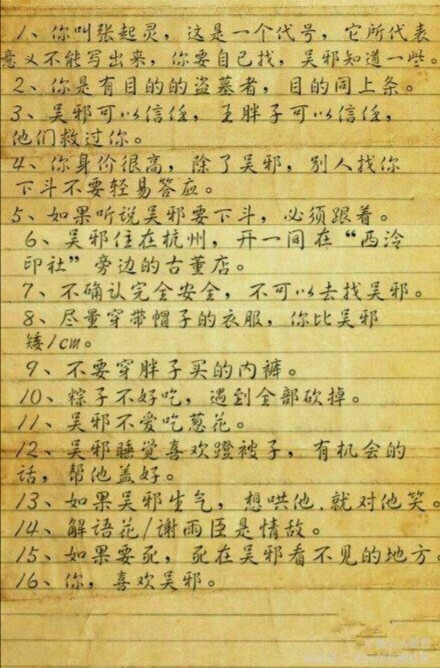 1、你叫张起灵，这是一个代号，它所代表
意义不能写出来，你要自己找，吴邪知道一些。
2、你是有目的的盗墓者，目的同上条。
3、吴邪可以信任，王胖子可以信任，
他们救过你。
4、你身价很高，除了吴邪，别人找你
下斗不要轻易答应。
5、如果听说吴邪要下斗，必须跟着。
6、吴邪住在杭州，开一间在“西泠
印社”旁边的古董店。
7、不确认完全安全，不可以去找吴邪。
8、尽量穿带帽子的衣服，你比吴邪
矮1cm。
9、不要穿胖子买的内裤。
10、粽子不好吃，遇到全部砍掉。
11、吴邪不爱吃葱花。
12、吴邪睡觉喜欢蹬被子，有机会的
话，帮他盖好。
13、如果吴邪生气，想哄他，就对他笑。
14、解语花/谢雨臣是情敌。
15、如果要死，死在吴邪看不见的地方。
16、你，喜欢吴邪。